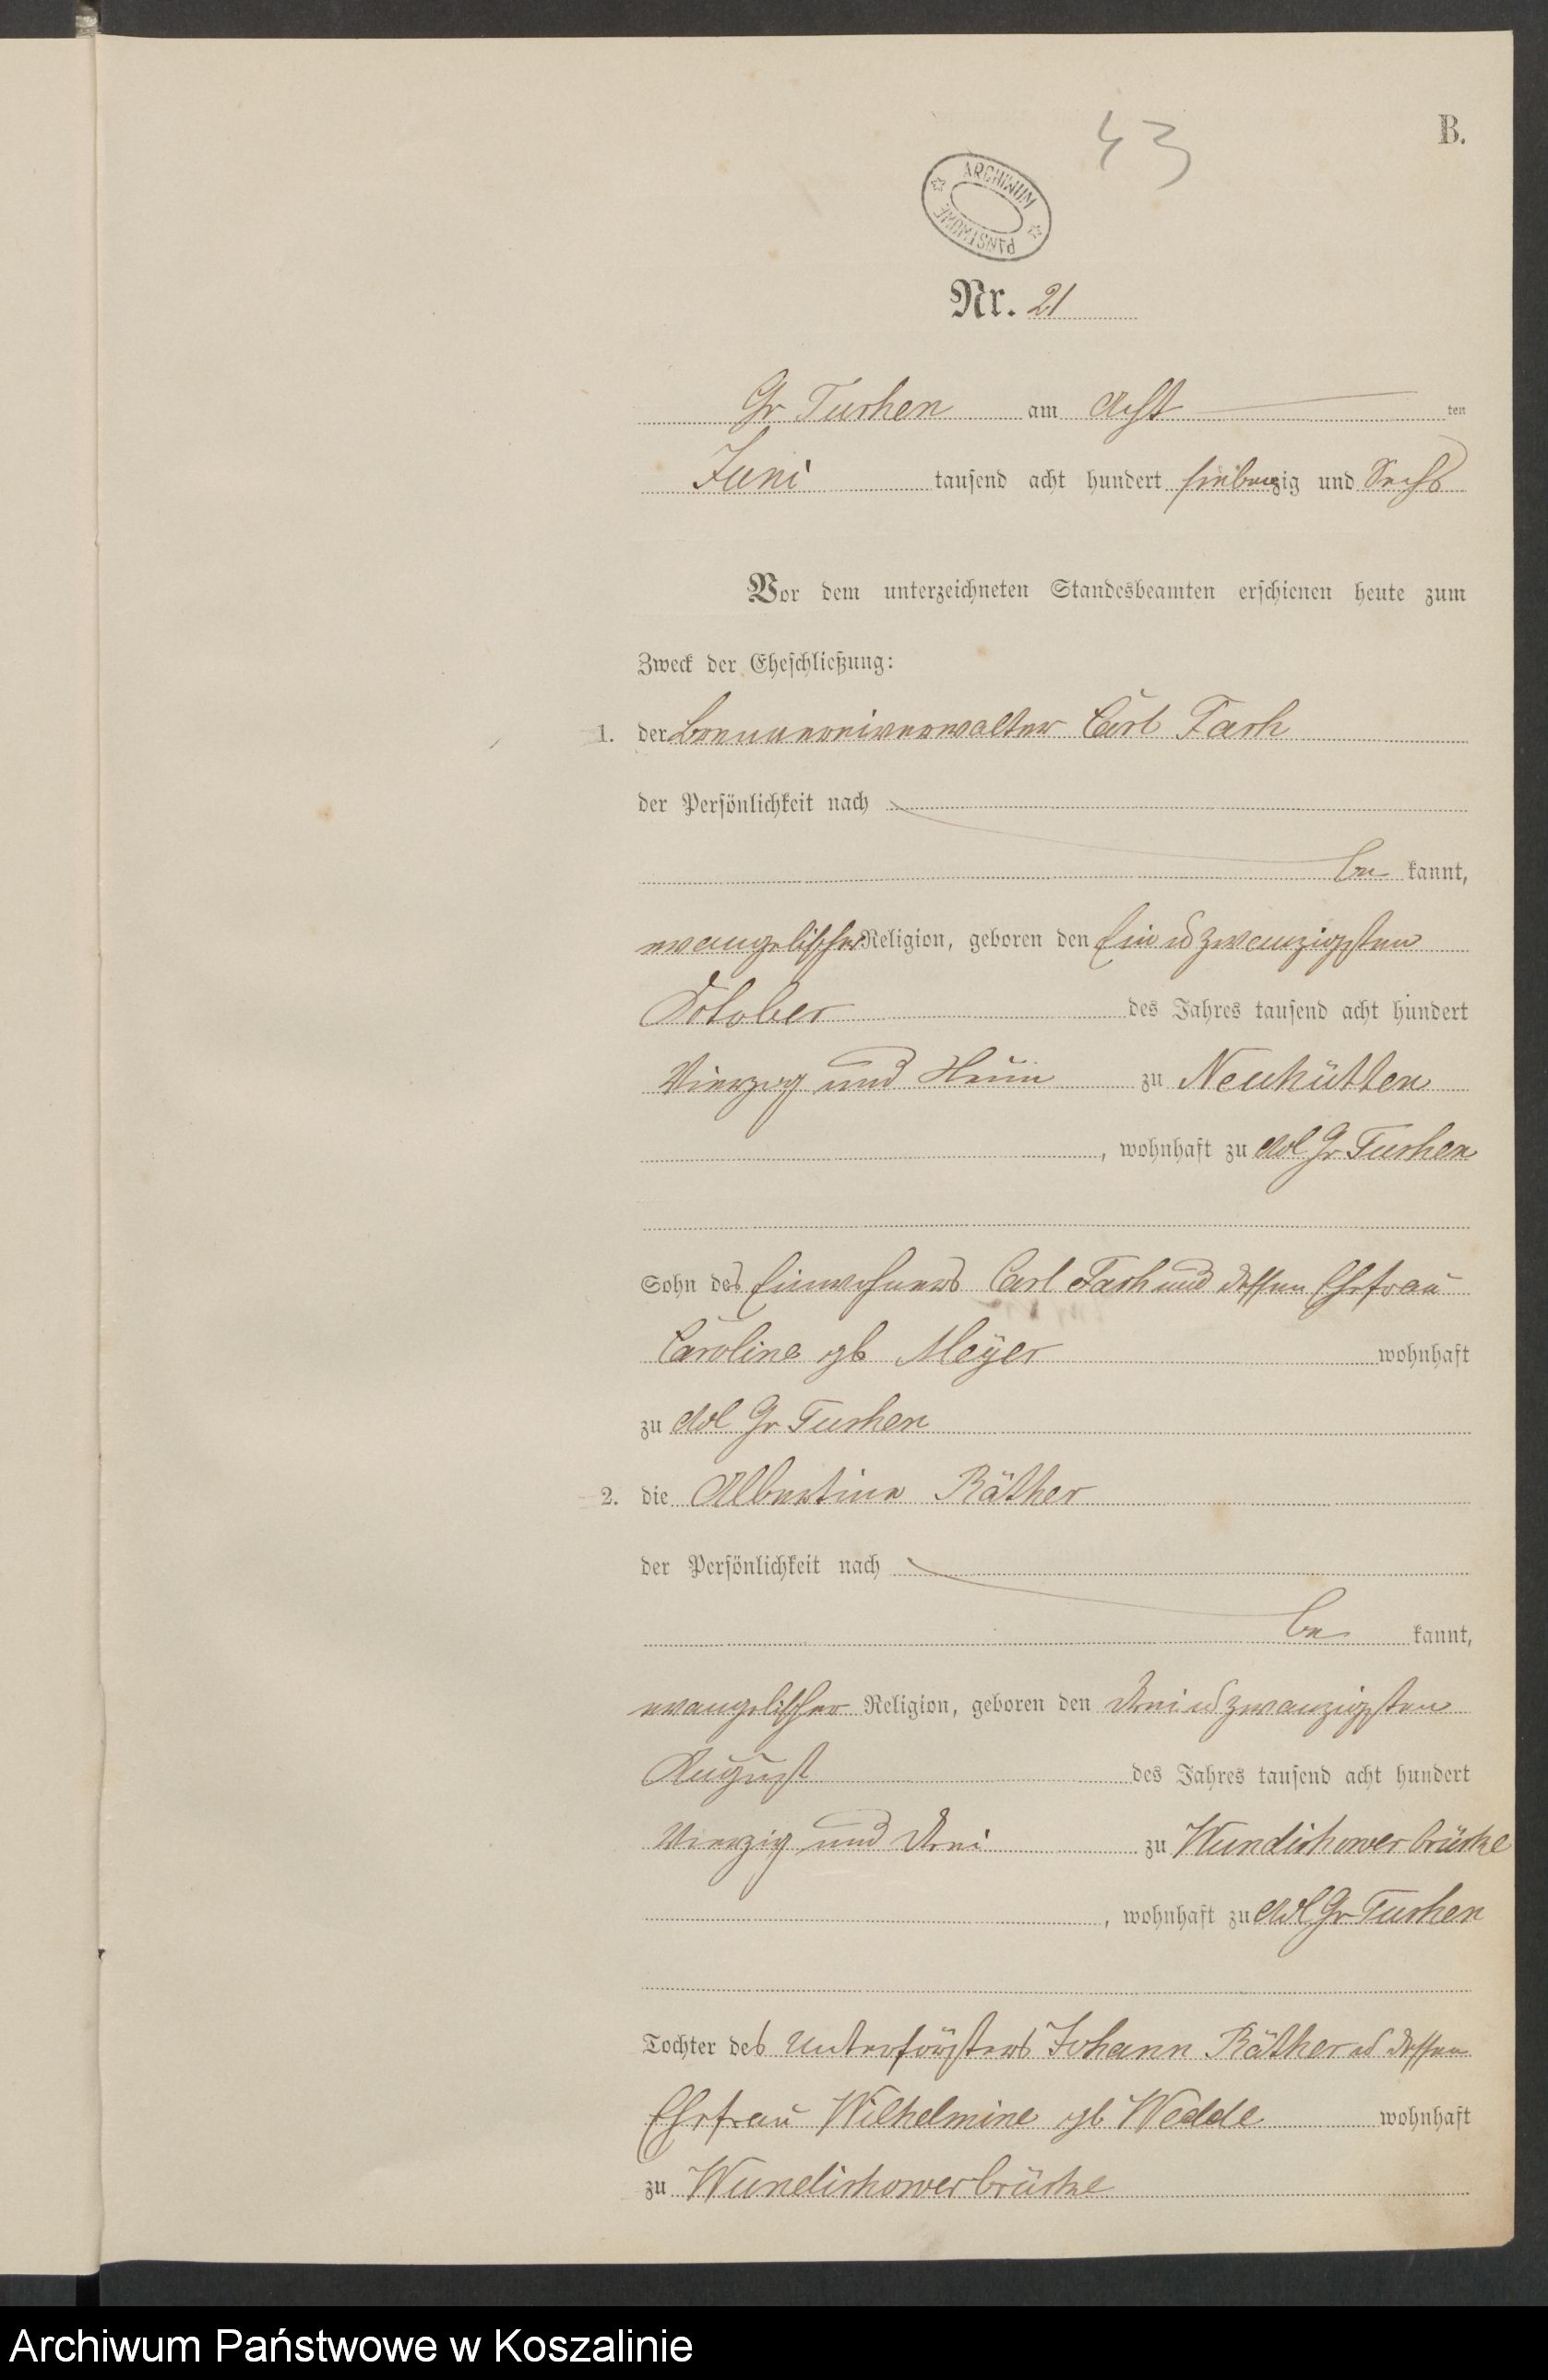 43
B.
ARCHIWUM PAŃSTWOWE
Nr. 21
Gr Tuchen am Acht ten
Juni tausend acht hundert siebenzig und Sechs
Vor dem unterzeichneten Standesbeamten erschienen heute zum
Zweck der Eheschließung:
1. der Brennereiverwalter Carl
der Persönlichkeit nach
be kannt,
evangelischer Religion, geboren den Ein u zwanzigsten
October des Jahres tausend acht hundert
Vierzig und Neun zu Neuhütten
, wohnhaft zu Adl Gr Tuchen
Sohn des Einwohners Carl und dessen Ehefrau
Caroline gb Meyer wohnhaft
zu Adl Gr Tuchen
2. die Albertine Räther
der Persönlichkeit nach
be kannt,
evangelischer Religion, geboren den Drei u zwanzigsten
August des Jahres tausend acht hundert
Vierzig und Drei zu Wundichowerbrücke
, wohnhaft zu Adl Gr Tuchen
Tochter des Unterförsters Johann Räther u dessen
Ehefrau Wilhelmine gb Wedde wohnhaft
zu Wundichowerbrücke
Archiwum Państwowe w Koszalinie